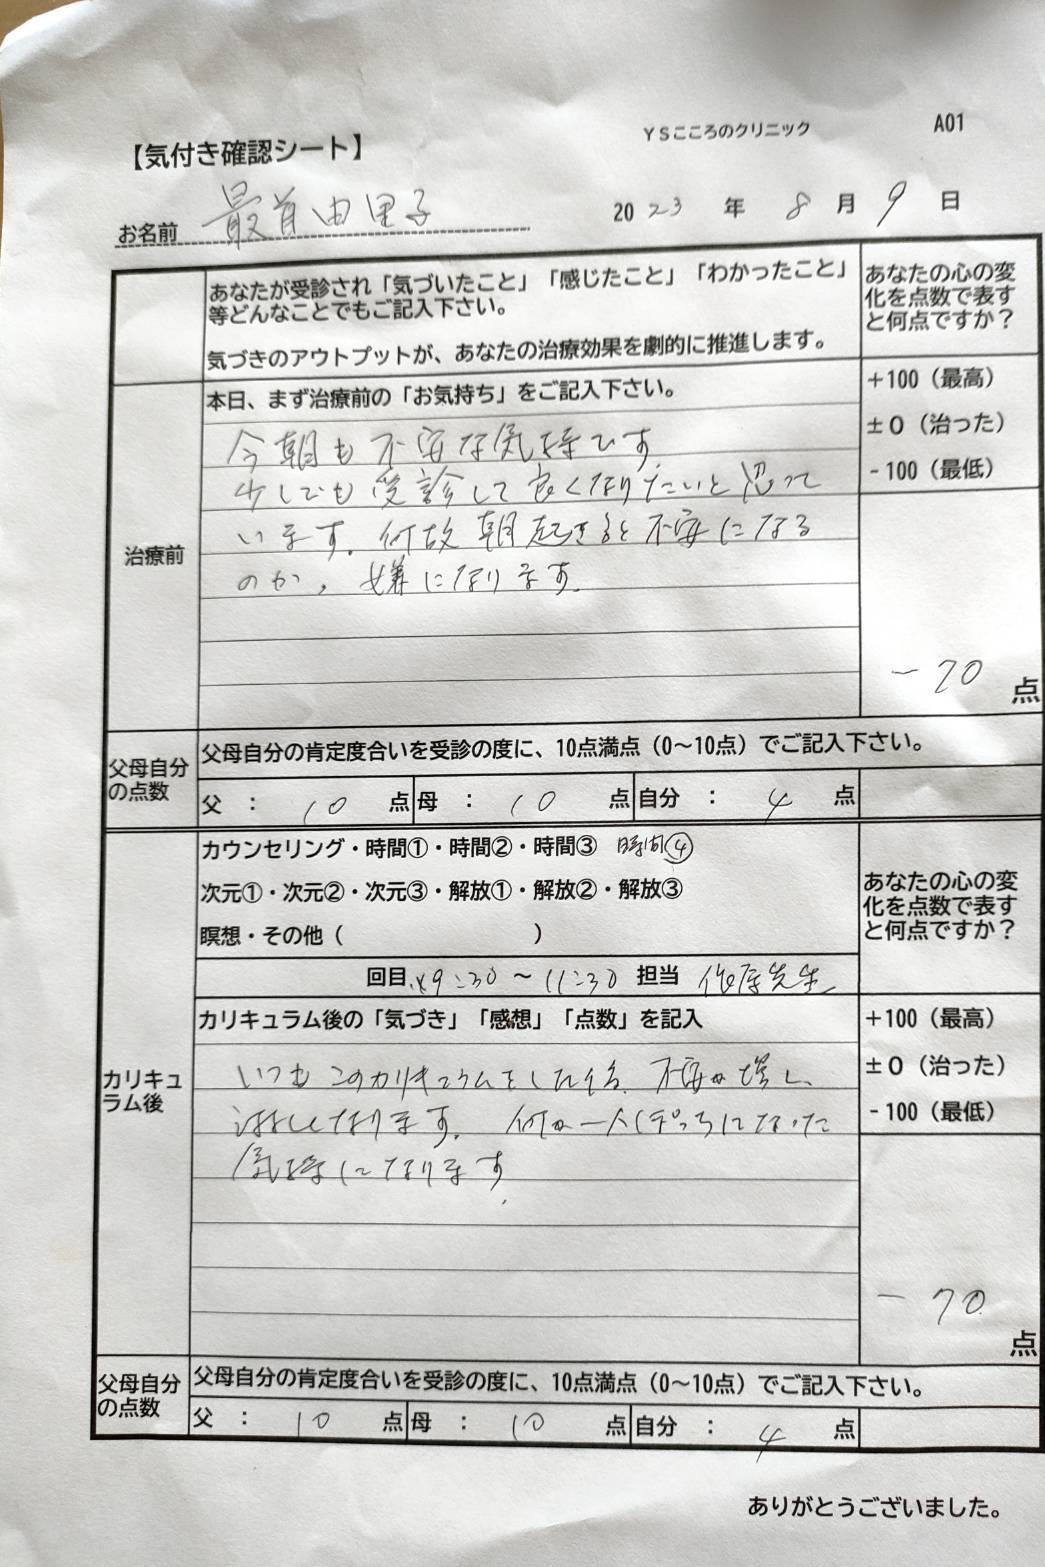 YSこころのクリニック
A01
【気付き確認シート】
お名前 最首由里子
2023年 8月 9日
あなたが受診され「気づいたこと」「感じたこと」「わかったこと」
等どんなことでもご記入下さい。
気づきのアウトプットが、あなたの治療効果を劇的に推進します。
あなたの心の変
化を点数で表す
と何点ですか？
治療前
本日、まず治療前の「お気持ち」をご記入下さい。
今朝も不安な気持です
少しでも受診して良くなりたいと思って
います。何故朝起きると不安になる
のか、嫌になります。
+100（最高）
±0（治った）
-100（最低）
-70 点
父母自分
の点数
父母自分の肯定度合いを受診の度に、10点満点（0～10点）でご記入下さい。
父 ： 10 点 母 ： 10 点 自分 ： 4 点
カリキュ
ラム後
カウンセリング・時間①・時間②・時間③ 時間④
次元①・次元②・次元③・解放①・解放②・解放③
瞑想・その他（ ）
回目 9:30 ～ 11:30 担当 先生
あなたの心の変
化を点数で表す
と何点ですか？
カリキュラム後の「気づき」「感想」「点数」を記入
いつもこのカリキュラムをした後、不安が増し、
淋しくなります。何か一人ぽっちになった
気持になります。
+100（最高）
±0（治った）
-100（最低）
-70 点
父母自分
の点数
父母自分の肯定度合いを受診の度に、10点満点（0～10点）でご記入下さい。
父 ： 10 点 母 ： 10 点 自分 ： 4 点
ありがとうございました。